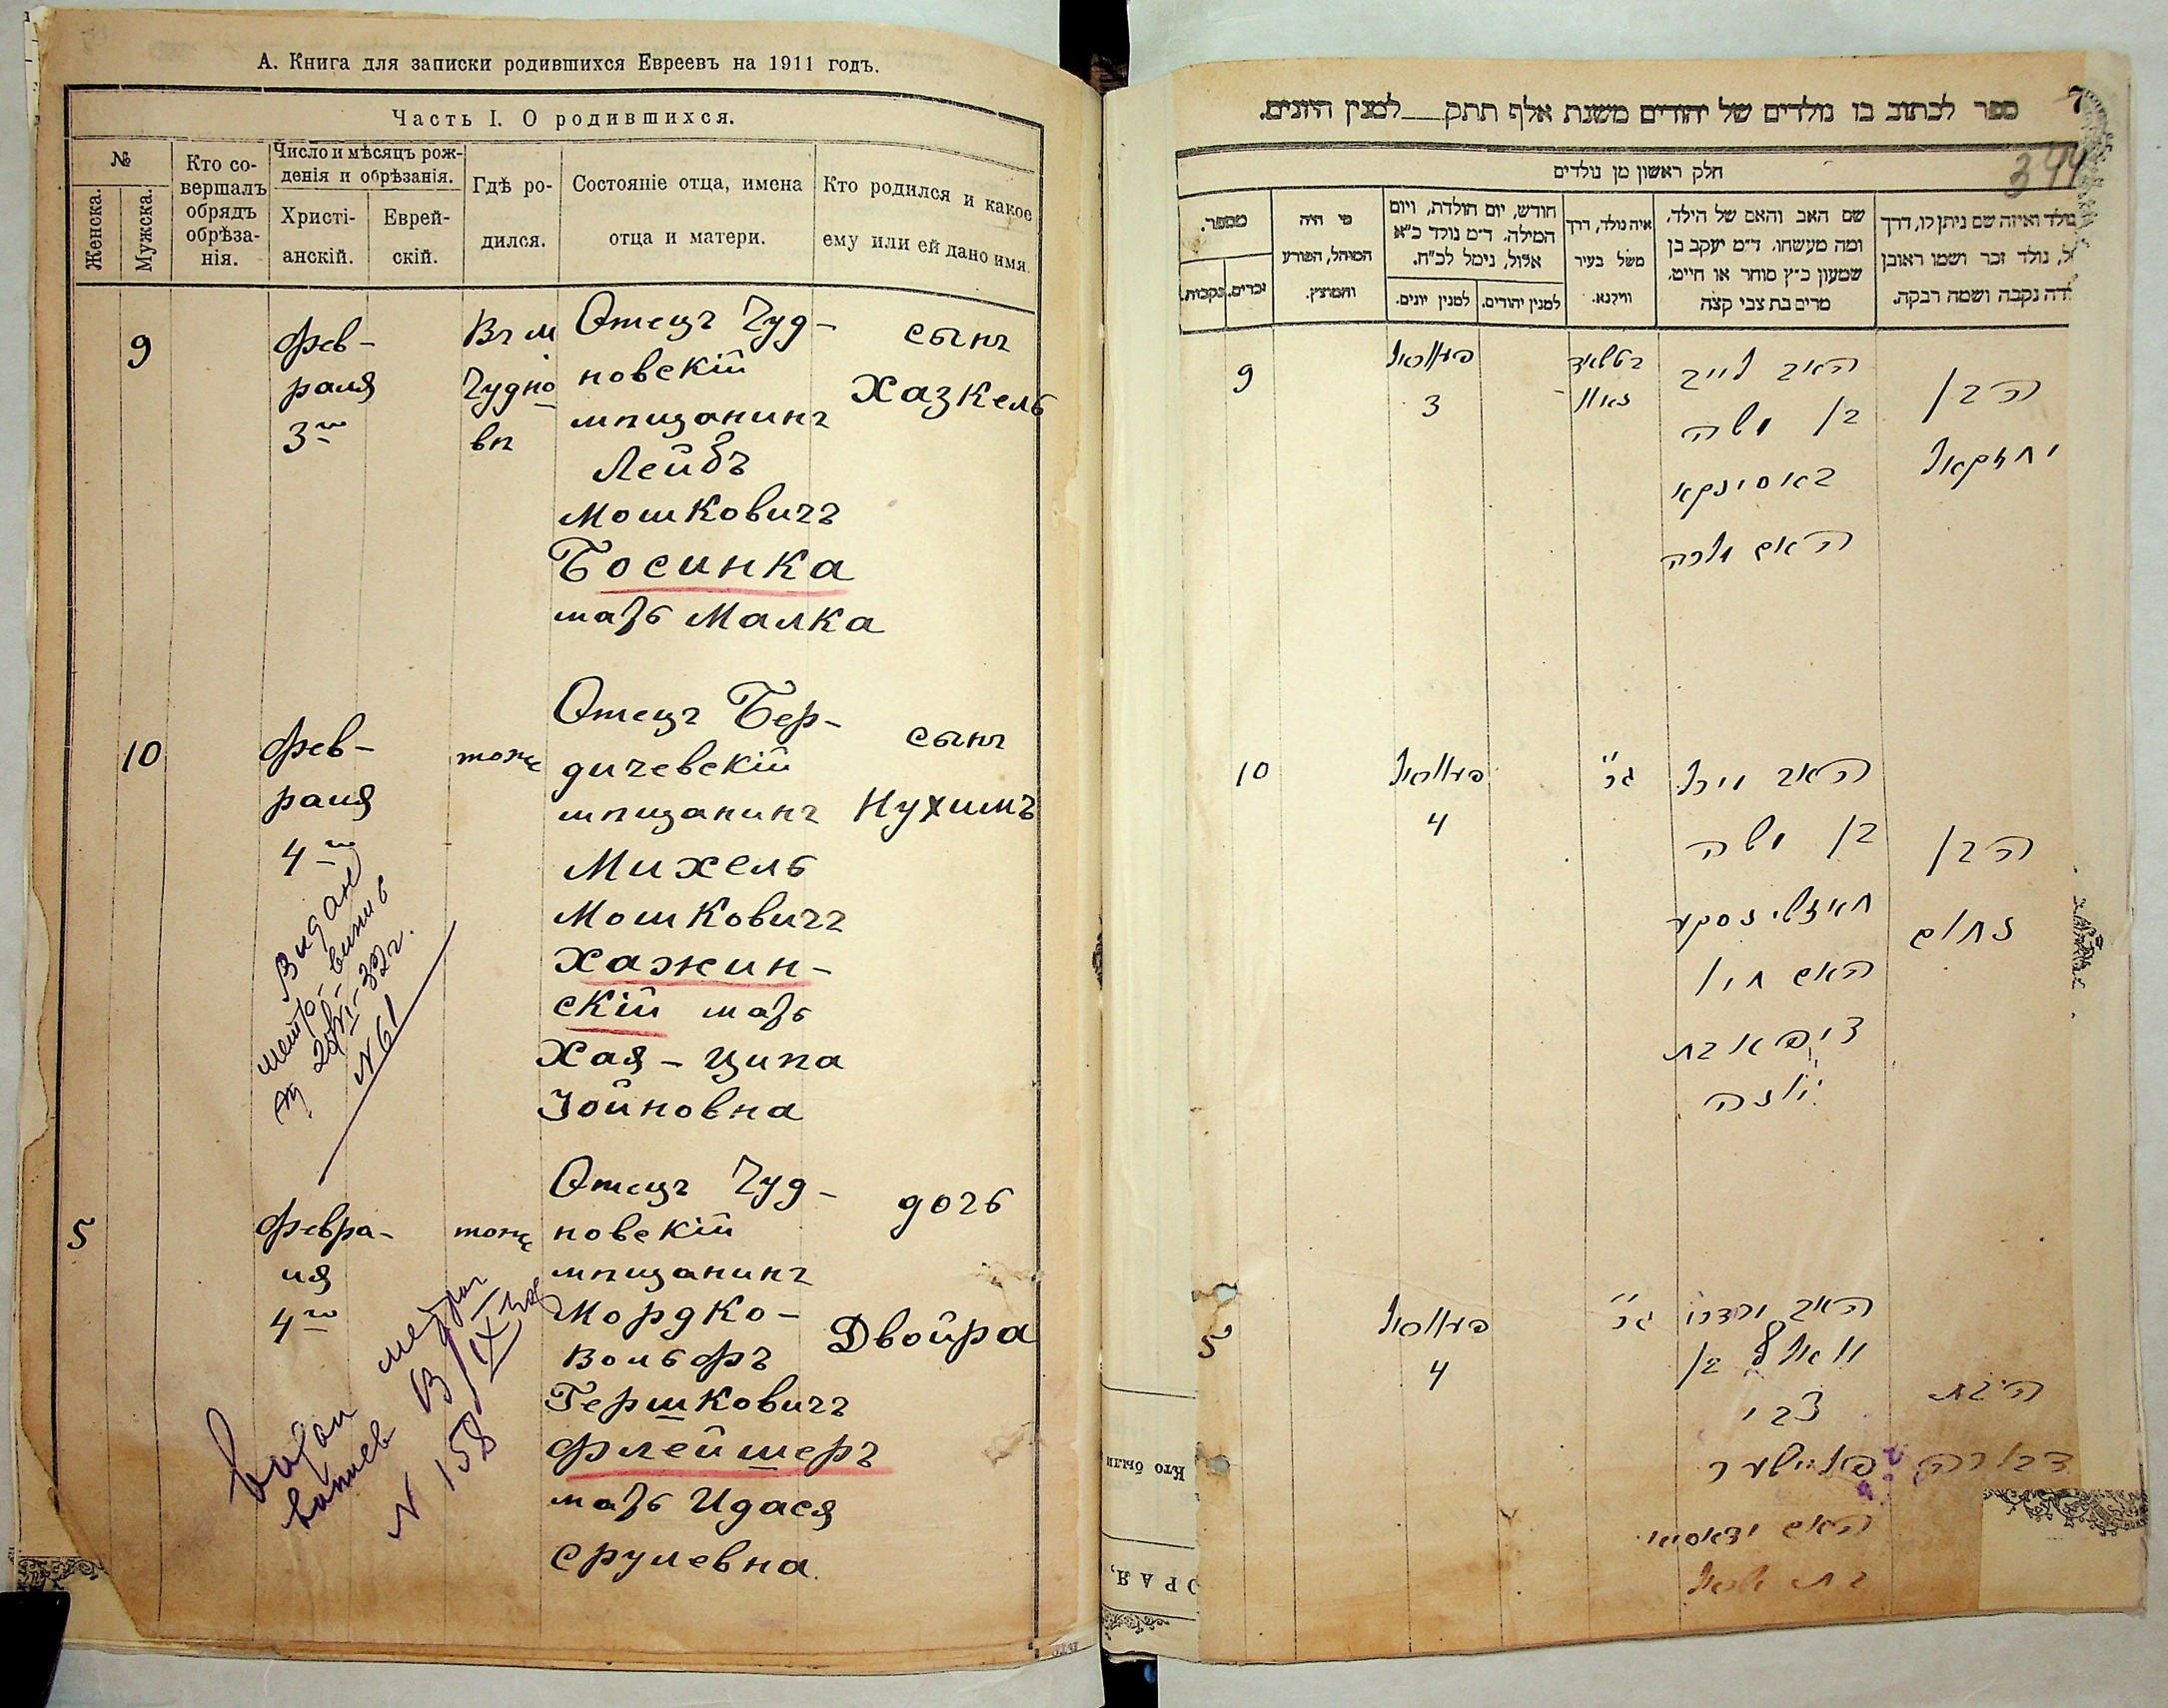 А. Книга для записки родившихся Евреевъ на 1911 годъ.
Часть I. О родившихся.
№
Женска.
Мужска.
Кто со-
вершалъ
обрядъ
обрѣза-
нія.
Число и мѣсяцъ рож-
денія и обрѣзанія.
Христі-
анскій.
Еврей-
скій.
Гдѣ ро-
дился.
Состояніе отца, имена
отца и матери.
Кто родился и какое
ему или ей дано имя.
9
Фев-
раля
3го
Въ м
Чудно
вѣ
Отецъ Чуд-
новскій
мѣщанинъ
Лейбъ
Мошковичъ
Босинка
мать Малка
сынъ
Хазкель
10
Фев-
раля
4го
тоже
Отецъ Бер-
дичевскій
мѣщанинъ
Михель
Мошковичъ
Хажин-
скій мать
Хая-Ципа
Іойновна
сынъ
Нухимъ
N 61
5
Февра-
ля
4го
тоже
Отецъ Чуд-
новскій
мѣщанинъ
Мордко-
Вольфъ
Гершковичъ
Флейшеръ
мать Идася
Срулевна
дочь
Двойра
N 158
7
ספר לכתוב בו נולדים של יהודים משנת אלף תתק__למנין היונים.
344
חלק ראשון מן נולדים
מספר.
זכרים.
נקבות.
מי היה
המוהל, הפורע
והמוצץ.
חודש, יום הולדת, ויום
המילה. ד״מ נולד כ״א
אלול, נימל לכ״ח.
למנין יונים.
למנין יהודים.
איה נולד, דרך
משל בעיר
ווילנא.
שם האב והאם של הילד,
ומה מעשהו. ד״מ יעקב בן
שמעון כ״ץ סוחר או חייט,
מרים בת צבי קצה
נולד ואיזה שם ניתן לו, דרך
ל, נולד זכר ושמו ראובן
דה נקבה ושמה רבקה.
9
פעווראל
3
האב לייב
בן משה
באסינקא
האם מלכה
הבן
יחזקאל
10
פעווראל
4
האב מיכל
בן משה
האם חי׳
ציפא בת
יונה
הבן
נחום
5
פעווראל
4
האב מרדכי
וואלף בן
צבי
פליישער
בת ישראל
הבת
דבורה
Кто были